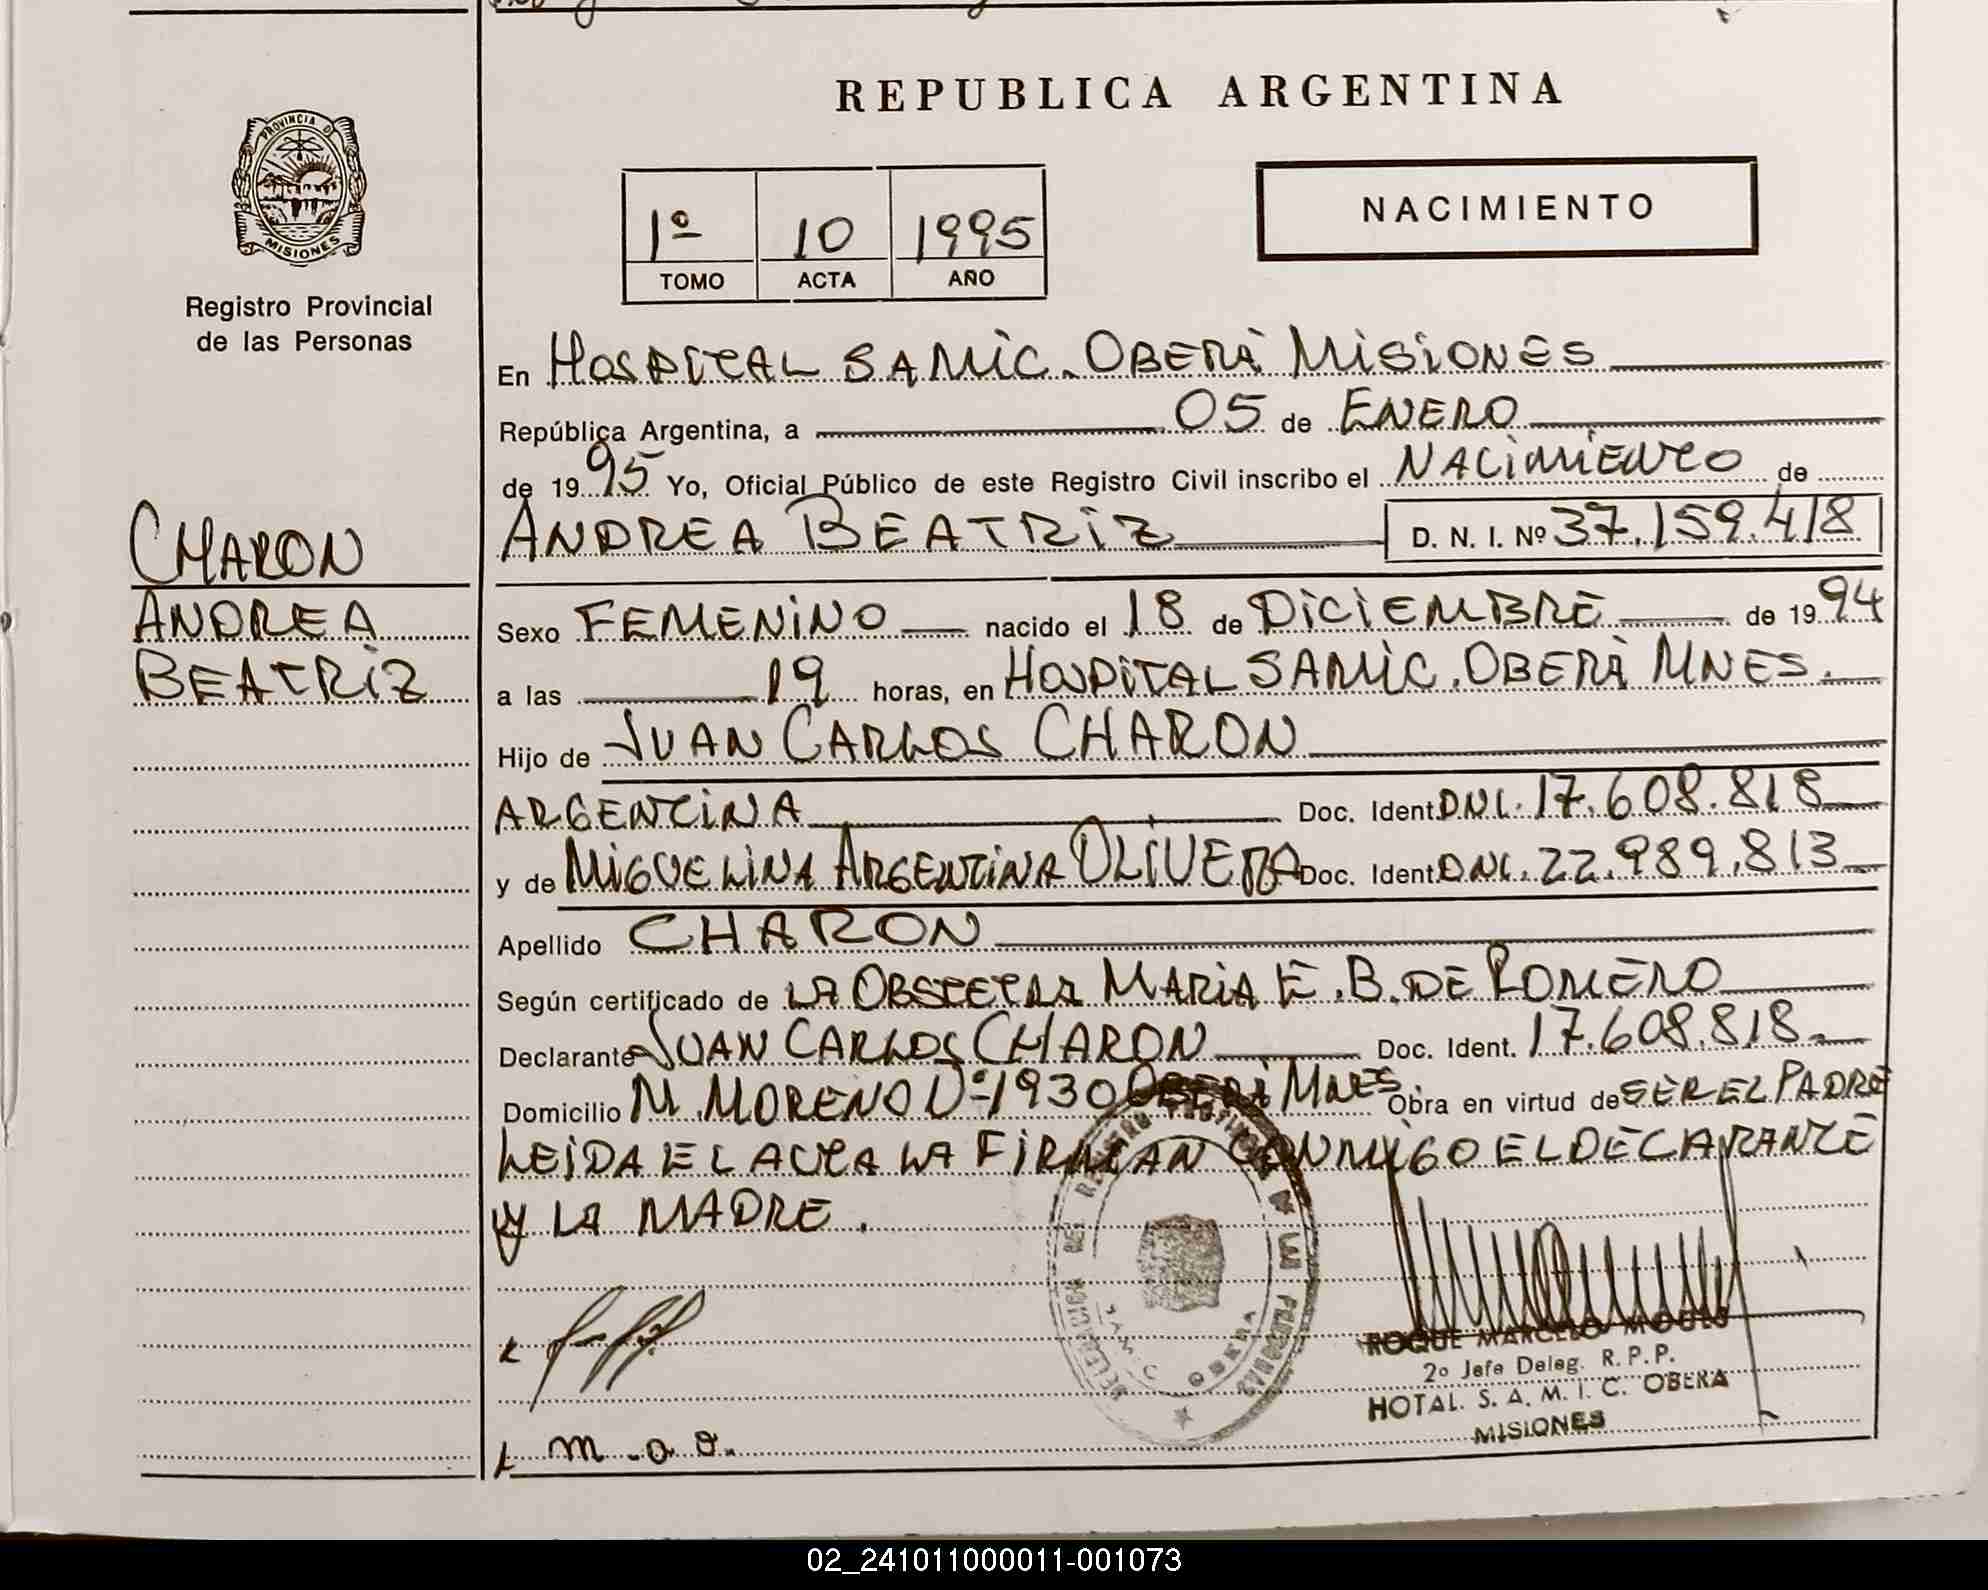 REPUBLICA ARGENTINA
PROVINCIA DE
MISIONES
Registro Provincial
de las Personas
1º 10 1995
TOMO ACTA AÑO
NACIMIENTO
En HOSPITAL SAMIC. OBERÀ MISIONES
República Argentina, a 05 de ENERO
de 1995 Yo, Oficial Público de este Registro Civil inscribo el NACIMIENTO de
ANDREA BEATRIZ D. N. I. Nº 37.159.418
CHARON
ANDREA
BEATRIZ
Sexo FEMENINO nacido el 18 de DICIEMBRE de 1994
a las 19 horas, en HOSPITAL SAMIC. OBERÀ MNES.
Hijo de JUAN CARLOS CHARON
ARGENTINA Doc. Ident. DNI. 17.608.818
y de MIGUELINA ARGENTINA OLIVERA Doc. Ident. DNI. 22.989.813
Apellido CHARON
Según certificado de LA OBSTETRA MARIA E. B. DE ROMERO
Declarante JUAN CARLOS CHARON Doc. Ident. 17.608.818
Domicilio M. MORENO Nº 1930 OBERÀ MNES. Obra en virtud de SER EL PADRE
LEIDA EL ACTA LA FIRMAN CONMIGO EL DECLARANTE
Y LA MADRE.
DELEGACION DEL REGISTRO PROVINCIAL DE LAS PERSONAS
S.A.M.I.C. OBERA
ROQUE MARCELO
2o Jefe Deleg. R.P.P.
HOTAL. S. A. M. I. C. OBERA
MISIONES
m. a. o.
02_241011000011-001073